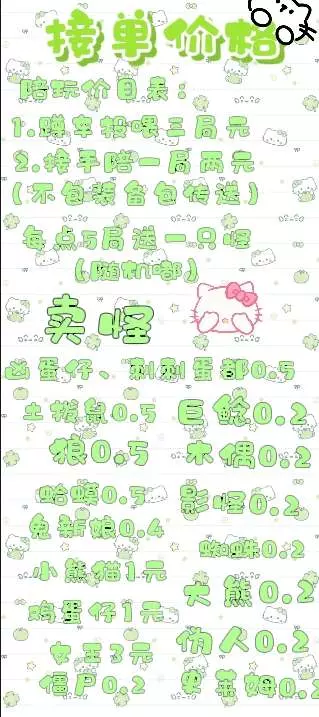 接单价格
陪玩价目表：
1.蹲牢投喂三局元
2.接手陪一局两元
(不包装备包传送)
每点5局送一只怪
(随机嘟)
卖怪
凶蛋仔、刺刺蛋都0.5
土拨鼠0.5 巨鲶0.2
狼0.5 木偶0.2
蛤蟆0.5 影怪0.2
鬼新娘0.4 蜘蛛0.2
小熊猫1元 大熊0.2
鸡蛋仔1元 伪人0.2
女王3元 史莱姆0.2
僵尸0.2